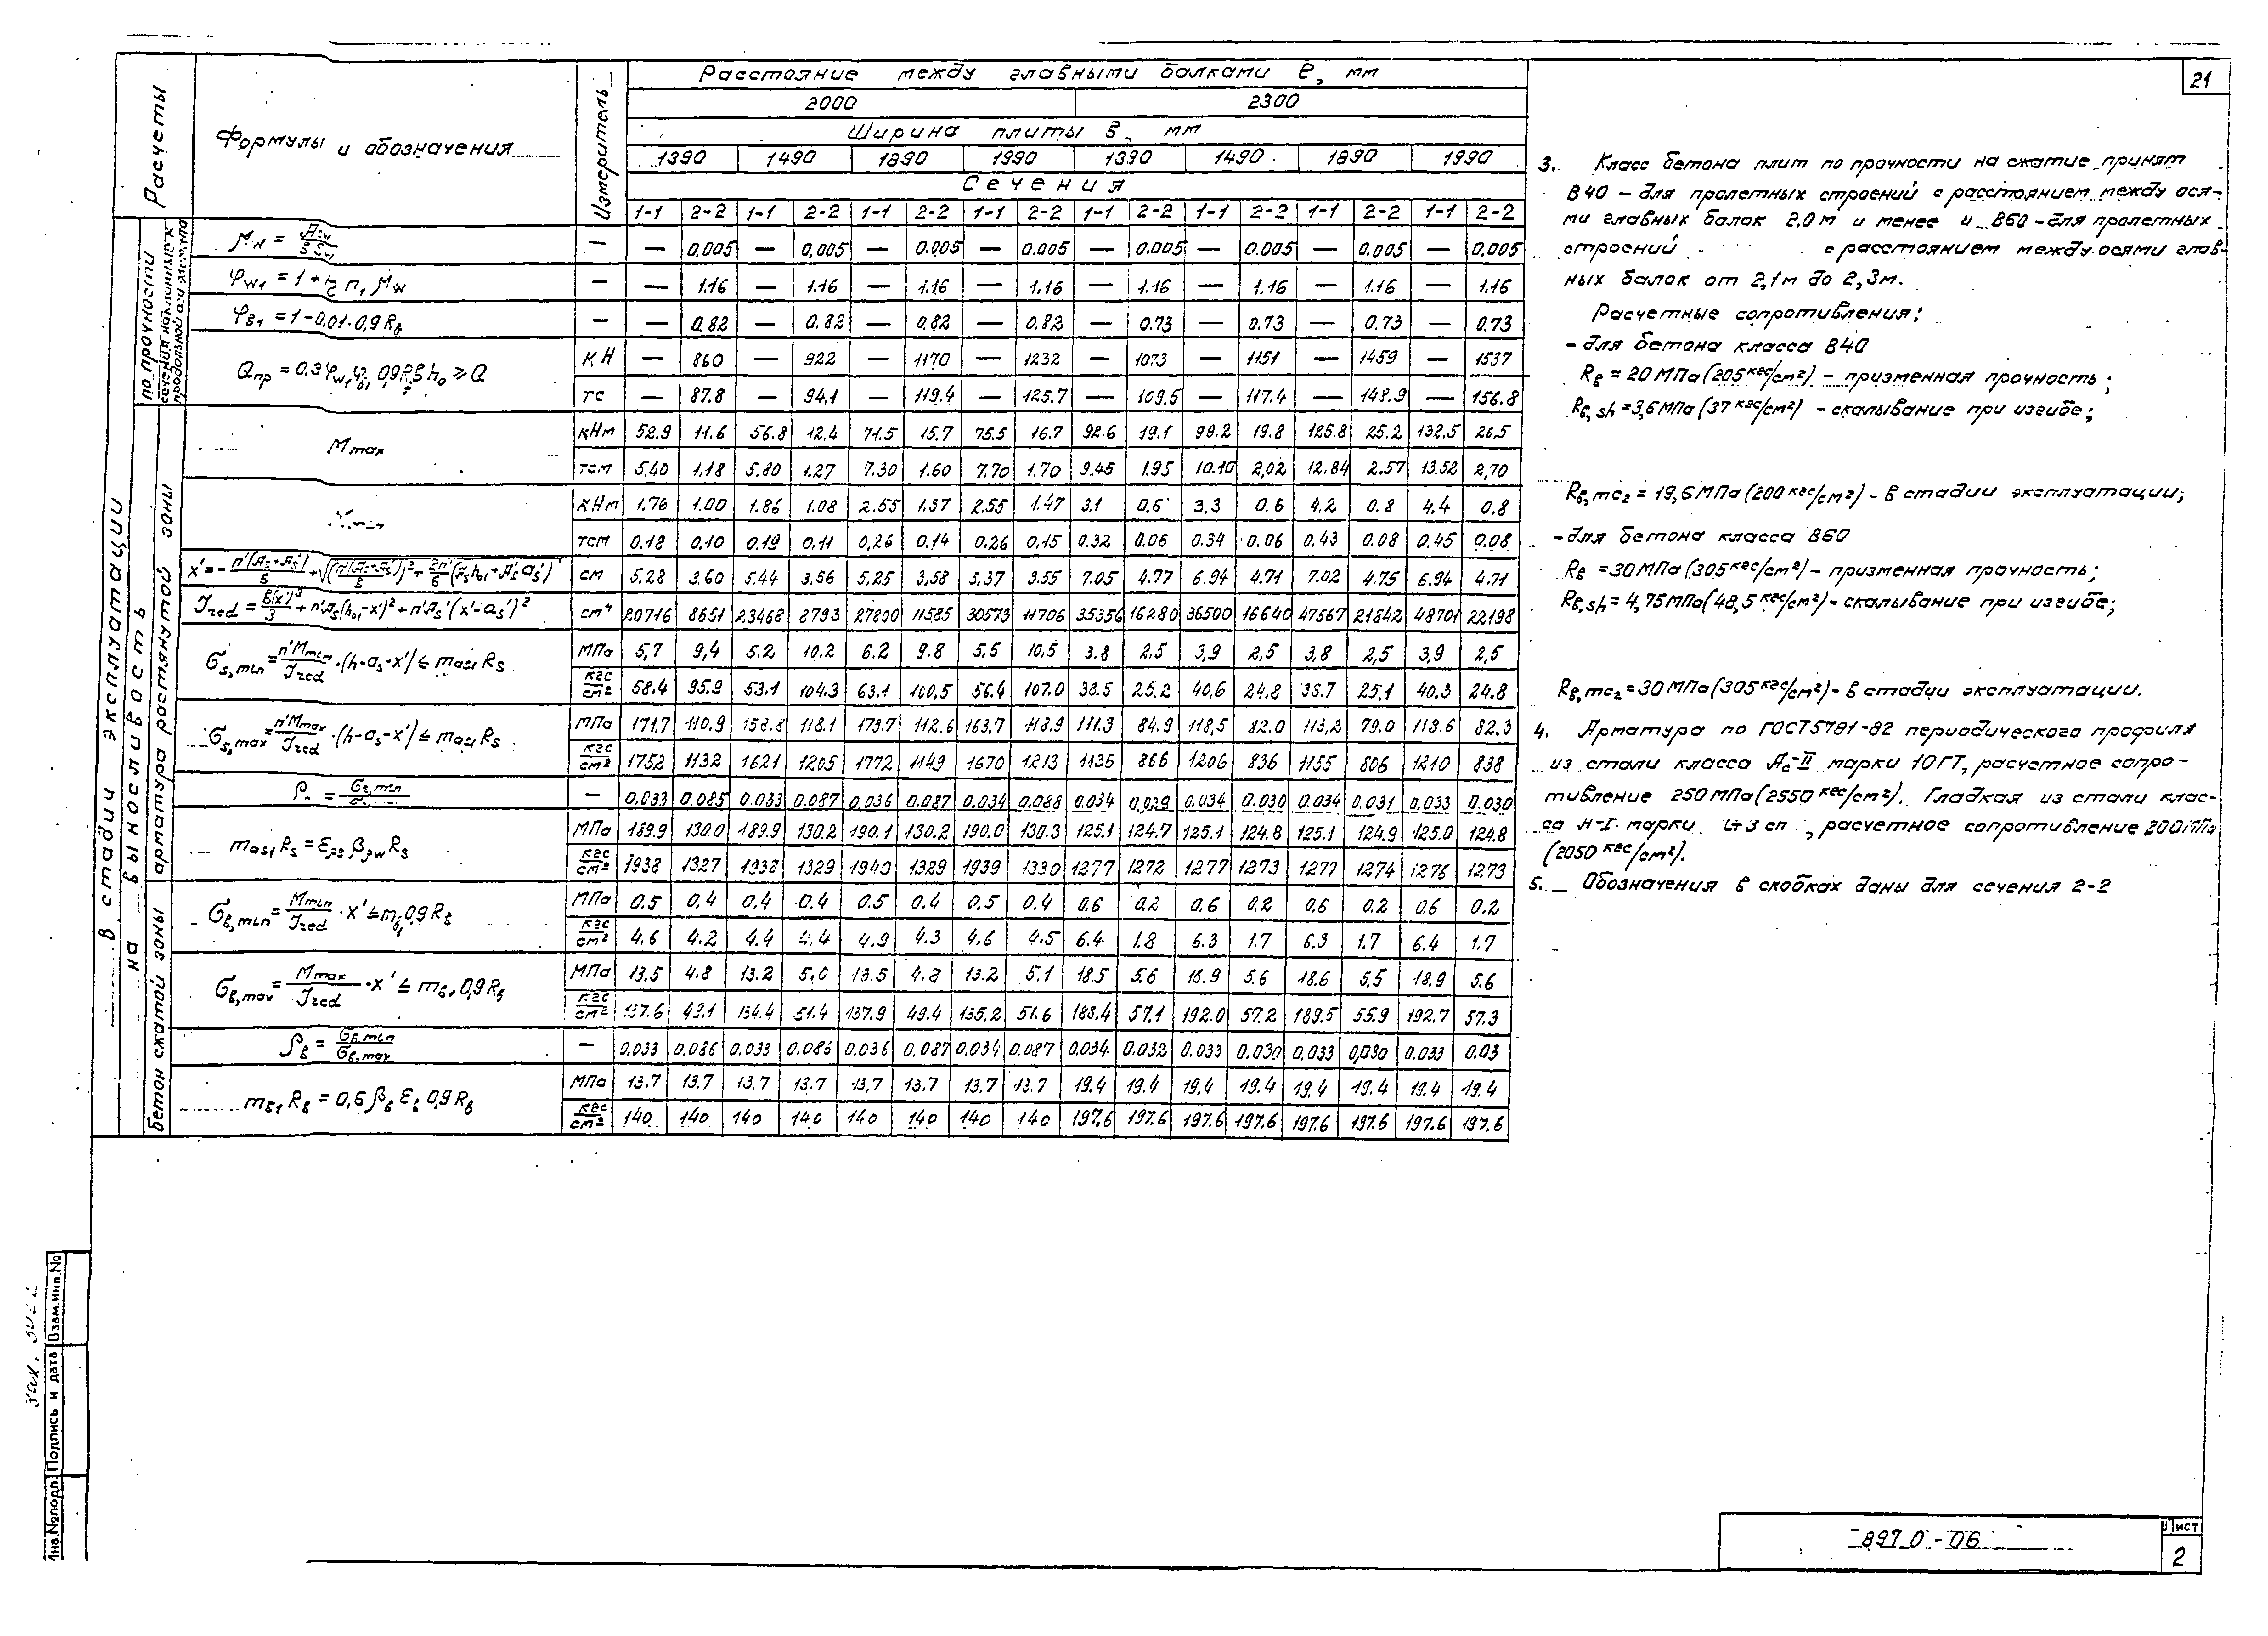 21
Расчеты
Формулы и обозначения
Измеритель
Расстояние между главными балками ℓ, мм
2000 2300
Ширина плиты В, мм
1390 1490 1890 1990 1390 1490 1890 1990
Сечения
1-1 2-2 1-1 2-2 1-1 2-2 1-1 2-2 1-1 2-2 1-1 2-2 1-1 2-2 1-1 2-2
в стадии эксплуатации
по прочности
на выносливость
арматура растянутой зоны
бетон сжатой зоны
— — 0.005 — 0,005 — 0.005 — 0.005 — 0.005 — 0.005 — 0.005 — 0.005
φw1 = 1 + n1 μw — — 1.16 — 1.16 — 1.16 — 1.16 — 1.16 — 1.16 — 1.16 — 1.16
φв1 = 1-0,01·0,9Rв — — 0.82 — 0.82 — 0.82 — 0.82 — 0.73 — 0.73 — 0.73 — 0.73
Qпр = 0.3φw1 φв1 0,9Rв в h0 ≥ Q кН — 860 — 922 — 1170 — 1232 — 1073 — 1151 — 1459 — 1537
тс — 87.8 — 94.1 — 119.4 — 125.7 — 109.5 — 117.4 — 148.9 — 156.8
Mmax кНм 52.9 11.6 56.8 12.4 71.5 15.7 75.5 16.7 92.6 19.1 99.2 19.8 125.8 25.2 132,5 26,5
тсм 5.40 1.18 5.80 1.27 7.30 1.60 7.70 1.70 9.45 1.95 10.10 2,02 12.84 2.57 13.52 2,70
кНм 1.76 1.00 1.86 1.08 2.55 1.37 2.55 1.47 3.1 0,6 3,3 0.6 4,2 0.8 4.4 0.8
тсм 0.18 0.10 0.19 0.11 0,26 0.14 0.26 0.15 0.32 0.06 0.34 0.06 0.43 0.08 0.45 0.08
x' = - n'(As+As')/в + √((n'(As+As')/в)² + 2n'/в (As h01 + As' as')) см 5,28 3.60 5.44 3,56 5,25 3,58 5,37 3.55 7.05 4.77 6.94 4.71 7.02 4.75 6.94 4.71
Ired = в(x')³/3 + n'As(h01-x')² + n'As'(x'-as')² см⁴ 20716 8651 23468 8793 27800 11585 30573 11706 35356 16280 36500 16640 47567 21842 48701 22198
σs,min = n'Mmin/Ired ·(h-as-x') ≤ mas1 Rs МПа 5,7 9,4 5.2 10.2 6.2 9.8 5.5 10,5 3.8 2.5 3,9 2,5 3,8 2,5 3,9 2,5
кгс/см² 58.4 95.9 53.1 104.3 63,1 100,5 56.4 107.0 38.5 25.2 40,6 24.8 38.7 25.1 40.3 24.8
σs,max = n'Mmax/Ired ·(h-as-x') ≤ mas1 Rs МПа 171.7 110.9 158.8 118.1 173.7 112.6 163.7 118.9 111.3 84.9 118,5 82.0 113,2 79.0 113.6 82.3
кгс/см² 1752 1132 1621 1205 1772 1149 1670 1213 1136 866 1206 836 1155 806 1210 838
— 0.033 0.085 0.033 0.087 0,036 0.087 0.034 0.088 0.034 0,029 0.034 0.030 0.034 0.031 0,033 0.030
mas1 Rs = ερs βρw Rs МПа 189.9 130.0 189.9 130.2 190.1 130.2 190.0 130.3 125.1 124.7 125.1 124.8 125.1 124.9 125.0 124.8
кгс/см² 1938 1327 1938 1329 1940 1329 1939 1330 1277 1272 1277 1273 1277 1274 1276 1273
σв,min = Mmin/Ired ·x' ≤ mв1 0,9Rв МПа 0.5 0.4 0.4 0.4 0.5 0.4 0.5 0.4 0.6 0.2 0.6 0.2 0.6 0.2 0,6 0.2
кгс/см² 4.6 4.2 4.4 4.4 4.9 4.3 4.6 4.5 6.4 1.8 6.3 1.7 6.3 1.7 6.4 1.7
σв,max = Mmax/Ired ·x' ≤ mв1 0,9Rв МПа 13.5 4.8 13.2 5.0 13.5 4.8 13.2 5.1 18.5 5.6 18.9 5.6 18.6 5.5 18,9 5.6
кгс/см² 137.6 49.1 134.4 51.4 137.9 49.4 135.2 51.6 188.4 57.1 192.0 57.2 189.5 55.9 192.7 57.3
ρв = σв,min/σв,max — 0.033 0.086 0.033 0.086 0.036 0.087 0.034 0.087 0.034 0.032 0.033 0.030 0,033 0,030 0.033 0.03
mв1 Rв = 0,6 βв εв 0,9Rв МПа 13.7 13.7 13.7 13.7 13,7 13.7 13.7 13.7 19.4 19.4 19.4 19.4 19.4 19.4 19.4 19.4
кгс/см² 140 140 140 140 140 140 140 140 197.6 197.6 197.6 197.6 197.6 197.6 197.6 197.6
3. Класс бетона плит по прочности на сжатие принят
В40 – для пролетных строений с расстоянием между ося-
ми главных балок 2.0м и менее и В60 – для пролетных
строений с расстоянием между осями глав-
ных балок от 2,1м до 2,3м.
Расчетные сопротивления:
- для бетона класса В40
Rв = 20МПа (205 кгс/см²) – призменная прочность;
Rв,sh = 3,6МПа (37 кгс/см²) – скалывание при изгибе;
Rв,mc2 = 19,6МПа (200 кгс/см²) – в стадии эксплуатации;
- для бетона класса В60
Rв = 30МПа (305 кгс/см²) – призменная прочность;
Rв,sh = 4,75МПа (48,5 кгс/см²) – скалывание при изгибе;
Rв,mc2 = 30МПа (305 кгс/см²) – в стадии эксплуатации.
4. Арматура по ГОСТ5781-82 периодического профиля
из стали класса Ас-II марки 10ГТ, расчетное сопро-
тивление 250МПа (2550 кгс/см²). Гладкая из стали клас-
са А-I марки Ст3 сп, расчетное сопротивление 200МПа
(2050 кгс/см²).
5. Обозначения в скобках даны для сечения 2-2
Взам.инв.№
Подпись и дата
Инв.№подл.
897.0-06
Лист
2